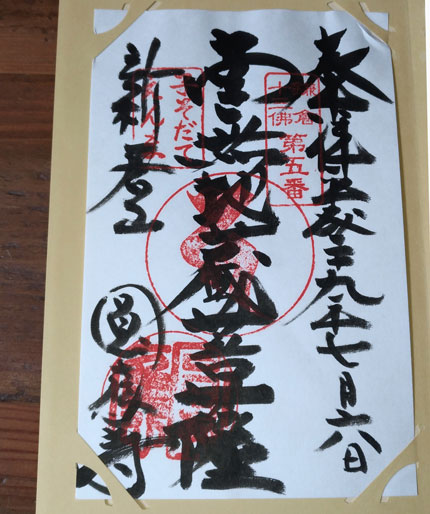 奉拝 平成二九年七月六日
鎌倉
十三佛
第五番
地蔵菩薩
こそだて
えんま
新居山
圓應寺